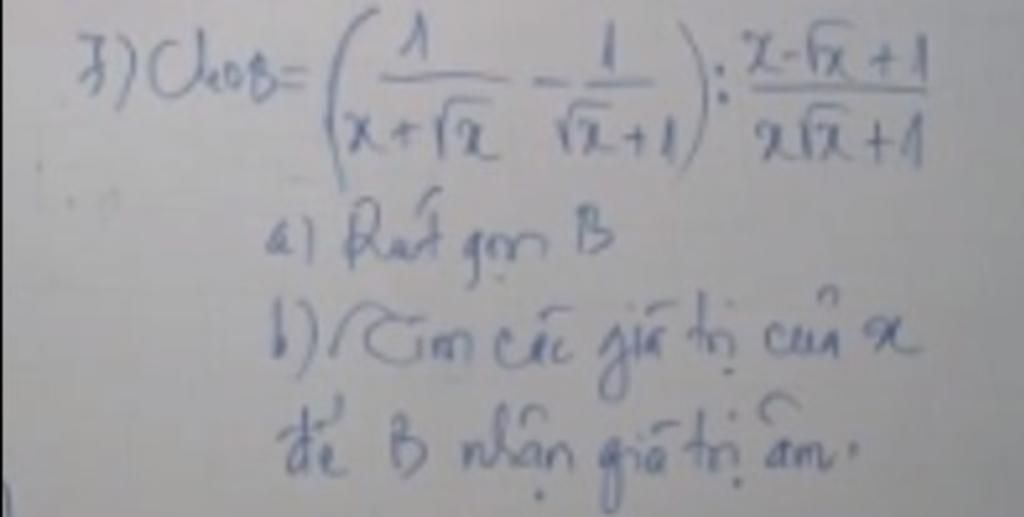 7) Cho B = (1/(x+√x) - 1/(√x+1)) : (x-√x+1)/(x√x+1)
a) Rút gọn B
b) Tìm các giá trị của x
để B nhận giá trị âm.